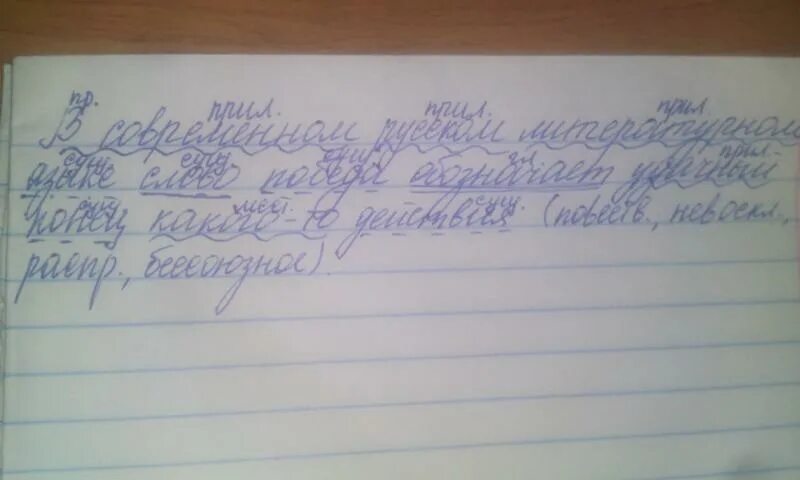 пр. прил. прил. прил.
В современном русском литературном
сущ. сущ. сущ. гл. прил.
языке слово победа обозначает удачный
сущ. мест. сущ.
конец какого-то действия (повеств., невоскл.,
распр., бессоюзное).